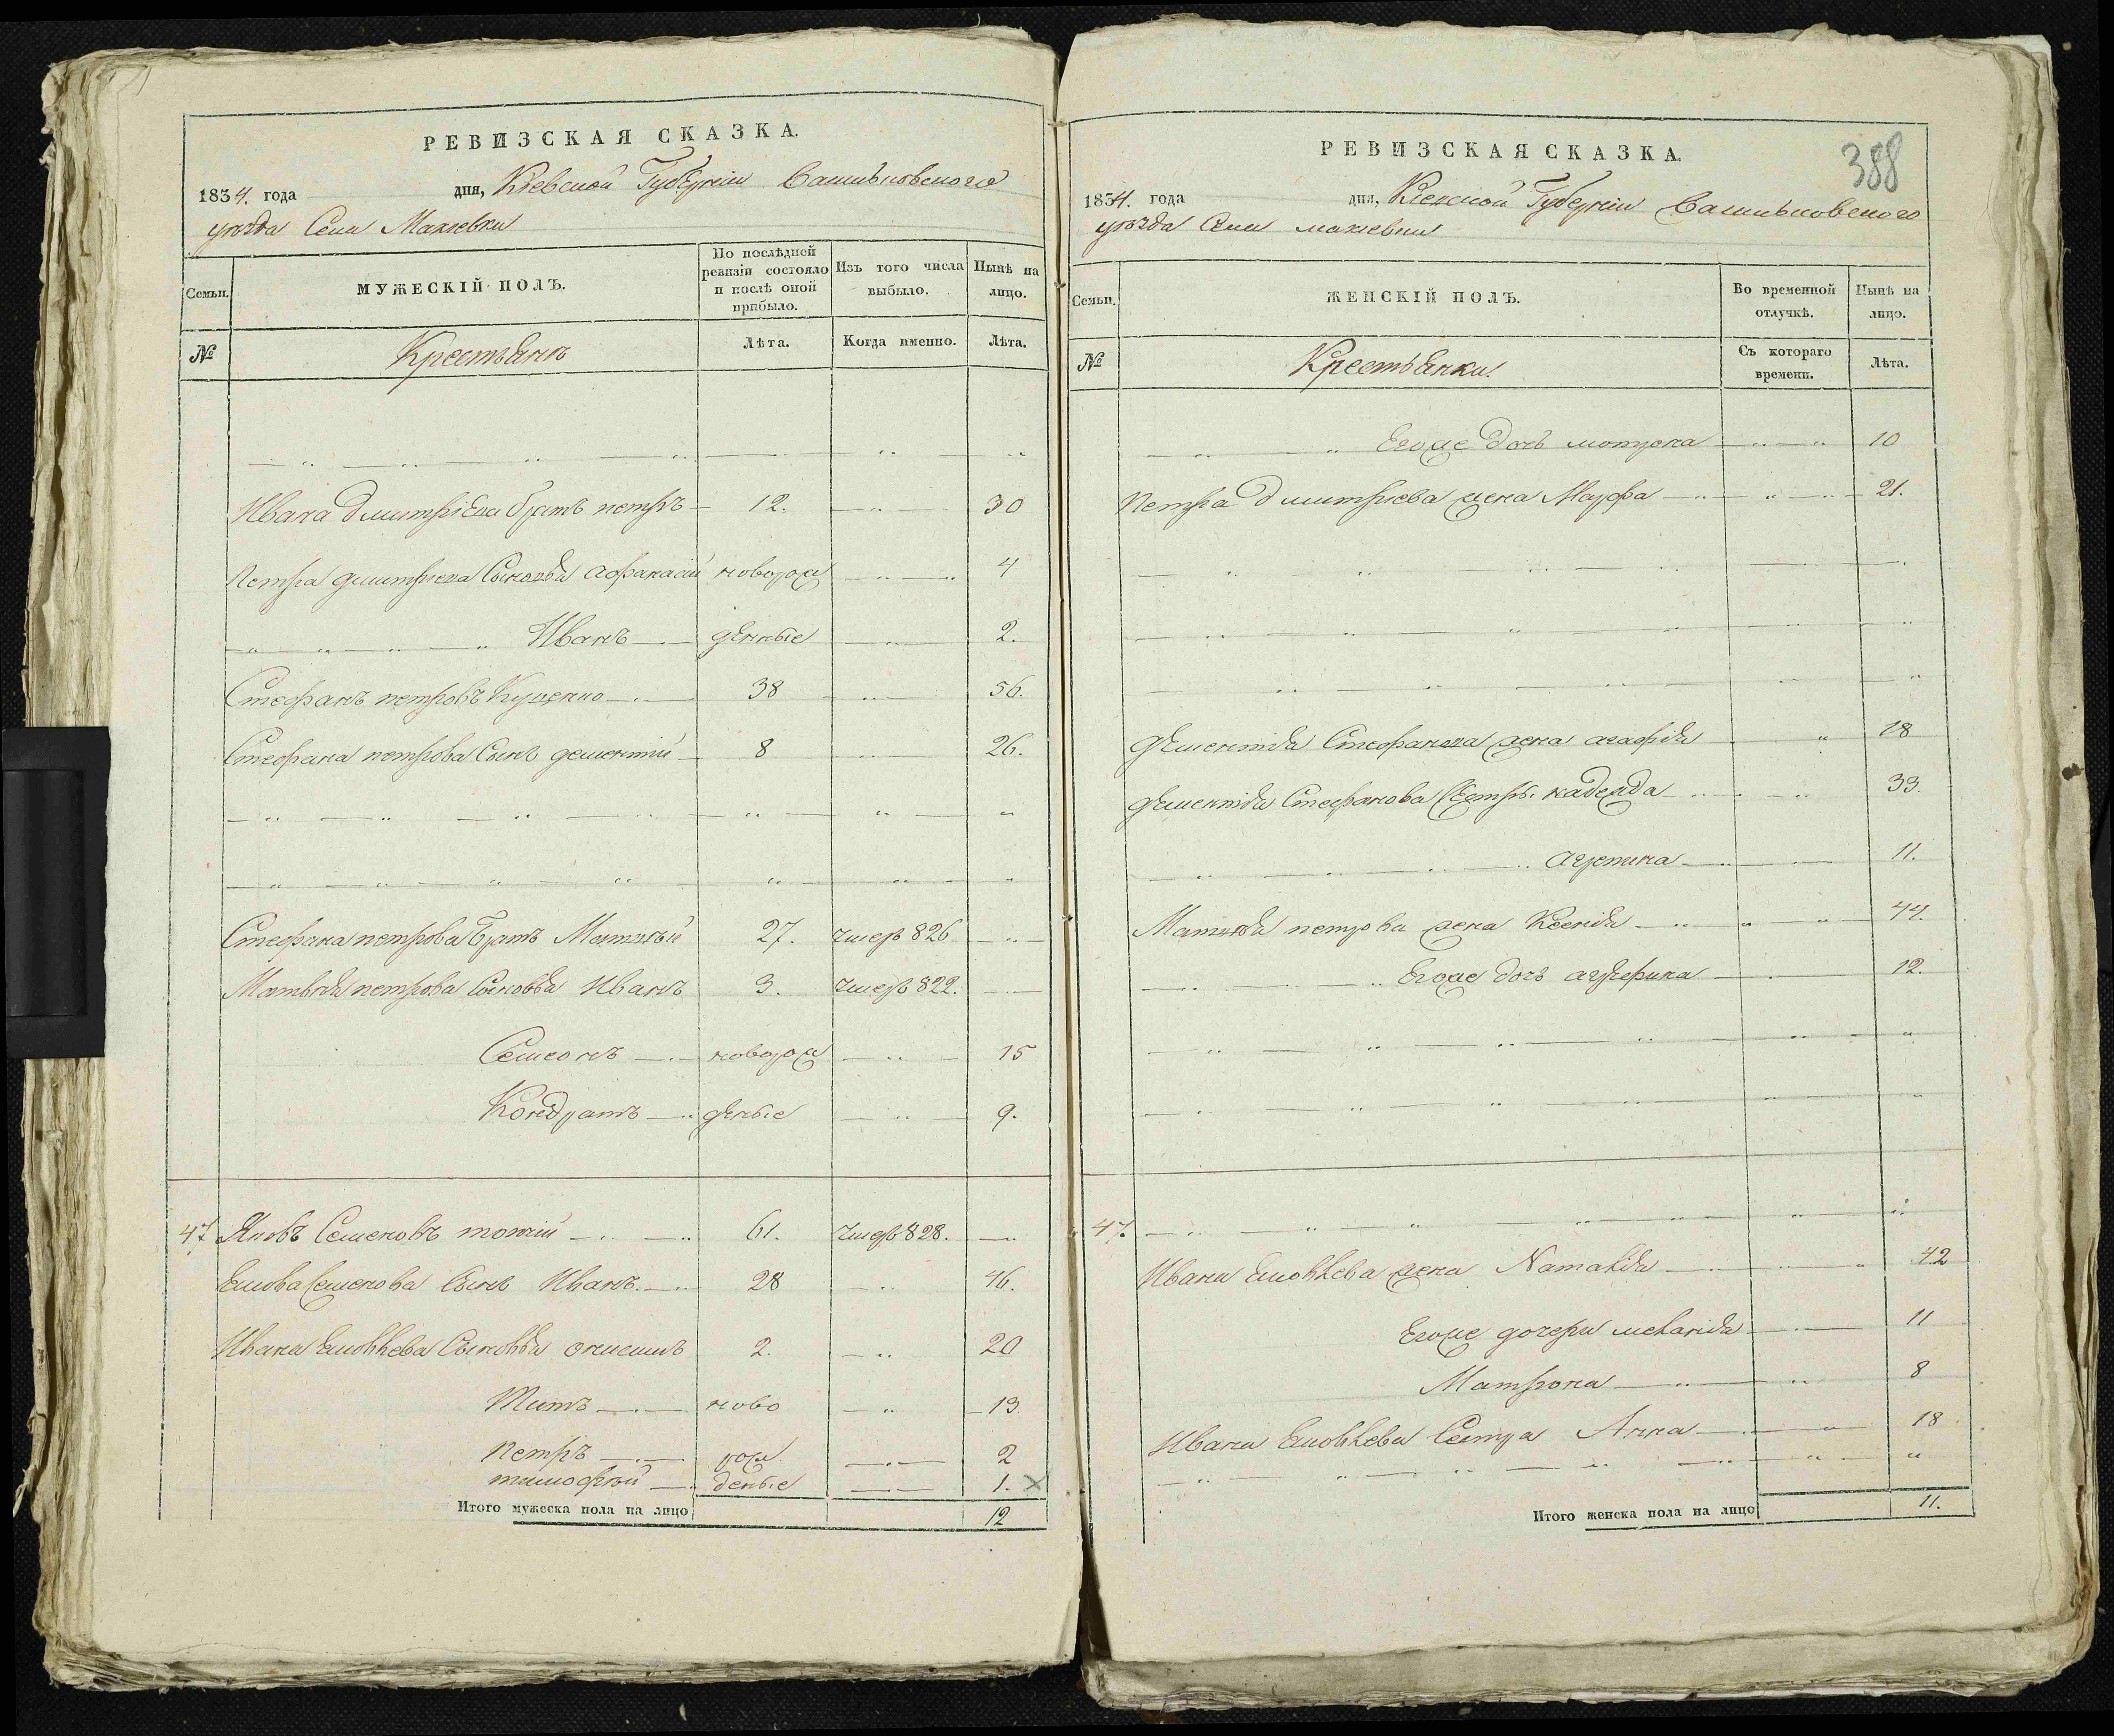 РЕВИЗСКАЯ СКАЗКА.
1834. года дня, Кіевской Губерніи Васильковскаго
уѣзда Села Макіевки
Семьи.
МУЖЕСКІЙ ПОЛЪ.
По послѣдней ревизіи состояло и послѣ оной прибыло.
Изъ того числа выбыло.
Нынѣ на лицо.
№
Крестьянъ
Лѣта.
Когда именно.
Лѣта.
Ивана Дмитріева братъ петръ 12. 30
Петра дмитріева Сыновья афанасій новорож 4
Иванъ денные 2.
Стефанъ петровъ Куценко 38 56.
Стефана петрова Сынъ дементій 8 26.
Стефана петрова Братъ Матвѣй 27. умеръ 826
Матвѣя петрова Сыновья Иванъ 3. умеръ 822.
Семенъ новорож 15
Кондратъ денные 9.
47 Яковъ Семеновъ 61. умеръ 828.
Якова Семенова Сынъ Иванъ. 28 46.
Ивана Яковлева Сыновья онисимъ 2. 20
Титъ ново 13
Петръ рож 2
тимофѣй денные 1. ×
Итого мужеска пола на лицо 12
388
РЕВИЗСКАЯ СКАЗКА.
1834. года дня, Кіевской Губерніи Васильковскаго
уѣзда Села макіевки
Семьи.
ЖЕНСКІЙ ПОЛЪ.
Во временной отлучкѣ.
Нынѣ на лицо.
№
Крестьянки
Съ котораго времени.
Лѣта.
Егоже дочь мотрона 10
Петра дмитріева жена Марфа 21.
дементія Стефанова жена агафія 18
дементія Стефанова Сестры надежда 33.
агрепина 11.
Матвѣя петрова жена Ксенія 44.
Егоже дочь 12.
47.
Ивана Яковлева жена Наталія 42
Егоже дочери меланія 11
Матрона 8
Ивана Яковлева Сестра Анна 18
Итого женска пола на лицо 11.